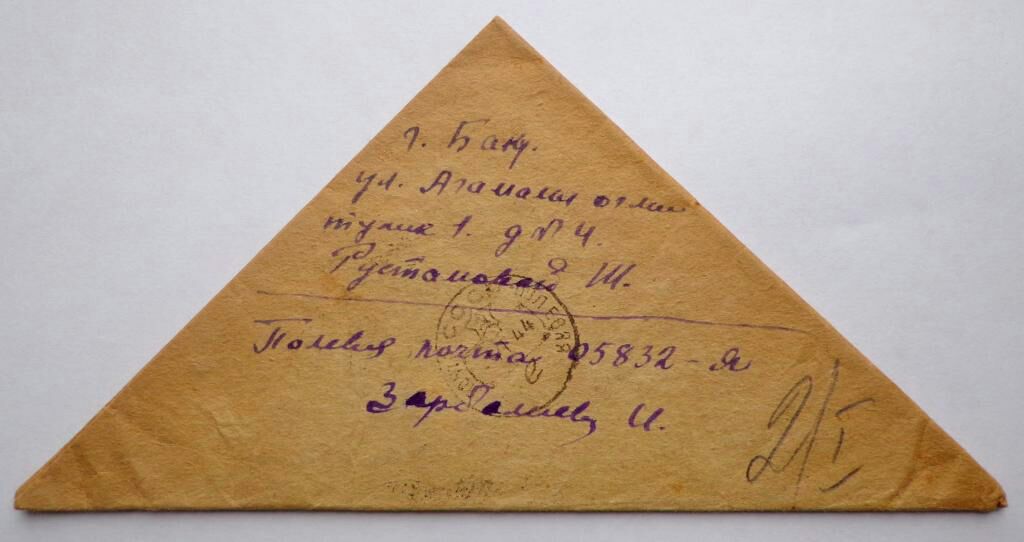 г. Баку.
ул. Агамалы оглы
тупик 1. д № 4.
Рустамовой Ш.
Полевая почта 05832-Я
Зарбалиев И.
ПОЛЕВАЯ
44
СССР
2/I